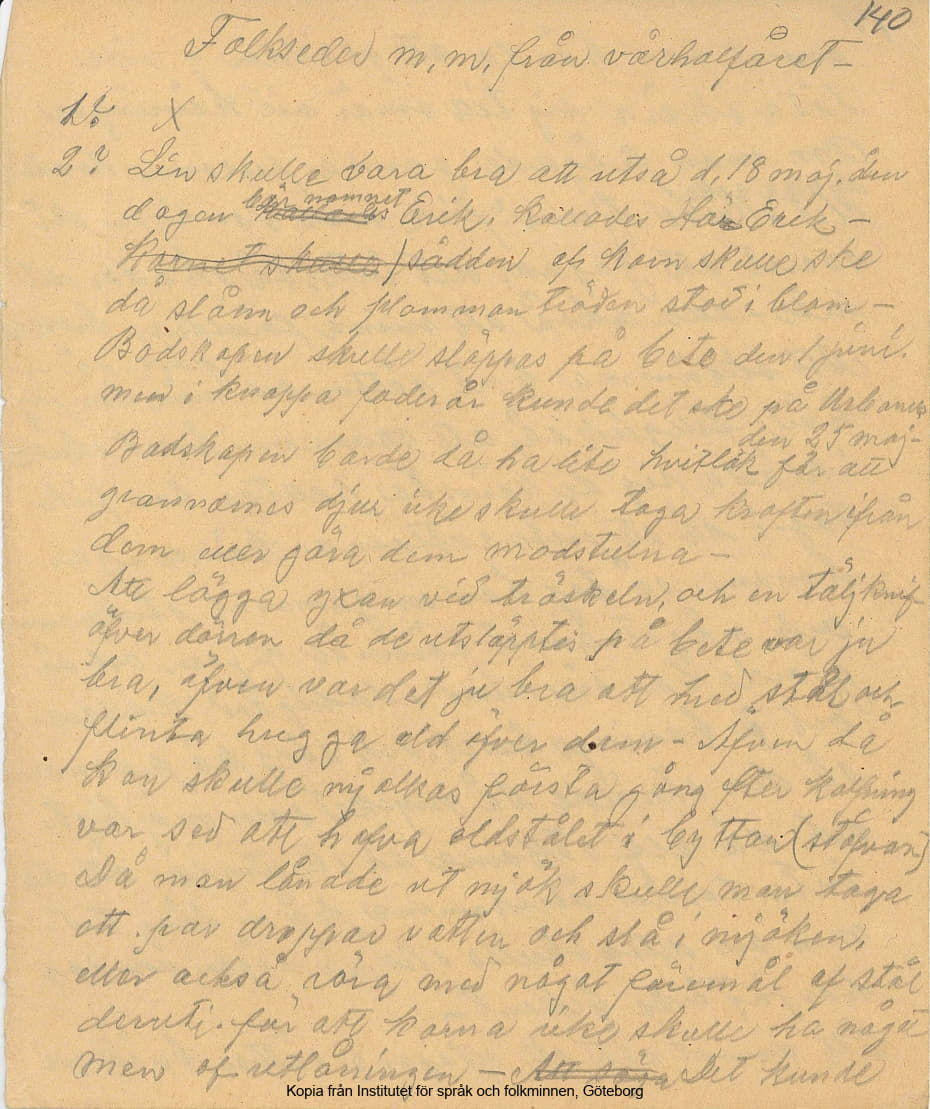 140
Folkseder m, m, från vårhalfåret —
1? X
2? Lin skulle vara bra att utså d, 18 maj. den
dagen bär namnet Erik. kallades Hör Erik —
Kornet skulle / sådden af korn skulle ske
då slåen och plommon träden stod i blom —
Bodskapen skulle släppas på bete den 1 juni.
men i knappa foderår kunde det ske på Urbanus
den 25 maj —
Bodskapen borde då ha lite hvitlök för att
grannarnes djur icke skulle taga kraften ifrån
dem eller göra dem modstulna —
Att lägga yxan vid tröskeln, och en täljknif
öfver dörren då de utsläpptes på bete var ju
bra, äfven var det ju bra att med stål och
flinta hugga eld öfver dem — Äfven då
kon skulle mjölkas första gång efter kalfning
var sed att hafva eldstålet i byttan (stäfvan)
Då man lånade ut mjök skulle man taga
ett par droppar vatten och slå i mjöken,
eller också röra med något föremål af stål
deruti. för att korna icke skulle ha något
men af utlåningen — Det kunde
Kopia från Institutet för språk och folkminnen, Göteborg